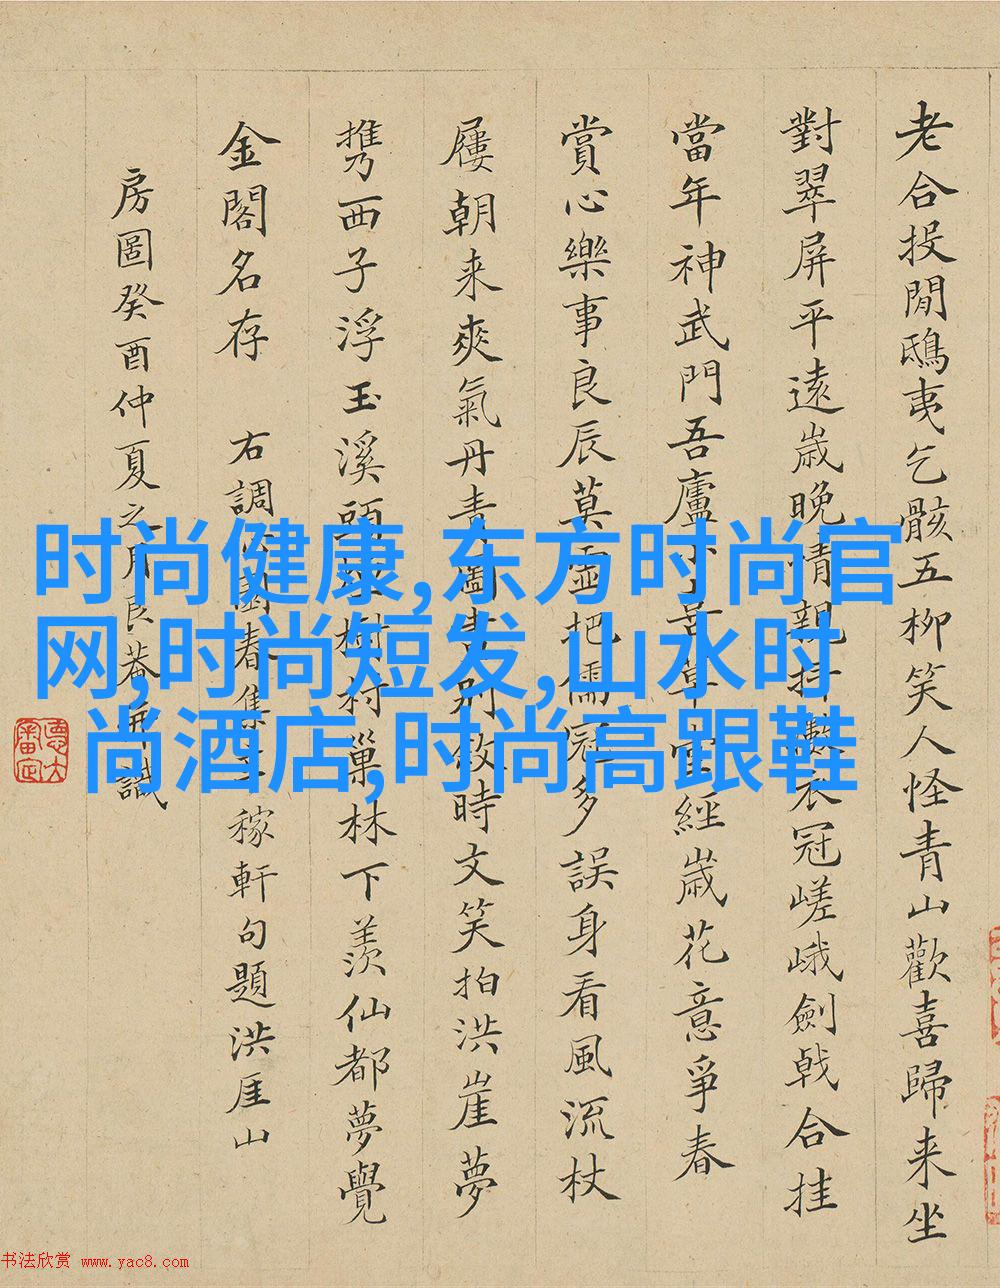 老合投閒鴟夷乞骸五柳笑人怪青山歡喜歸来坐
對翠屏平遠歲晚情親持數衣冠嵯峨劍戟合挂
當年神武門吾廬小草堂經歲花意爭春
賞心樂事良辰莫把儒冠多誤身看風流杖
屨朝来爽氣丹青別敘時文笑拍洪崖夢
携西子浮玉溪頭村柯巢林下羨仙都夢覺
金閣名存 右調園春集稼軒句題洪厓山
房圖癸酉仲夏之月良菴識
时尚健康,东方时尚官
网,时尚短发,山水时
尚酒店,时尚高跟鞋
书法欣赏 www.yac8.com